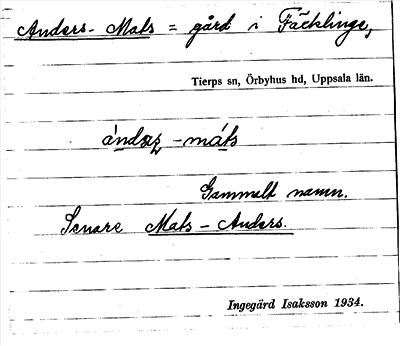 Anders-Mats = gård i Fäcklinge,
Tierps sn, Örbyhus hd, Uppsala län.
ándaʂ -máts
Gammalt namn.
Senare Mats-Anders.
Ingegärd Isaksson 1934.